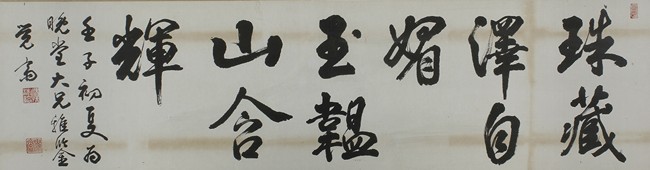 珠藏
澤自
媚
玉韞
山含
輝
壬子初夏為
晚堂大兄雅鑒